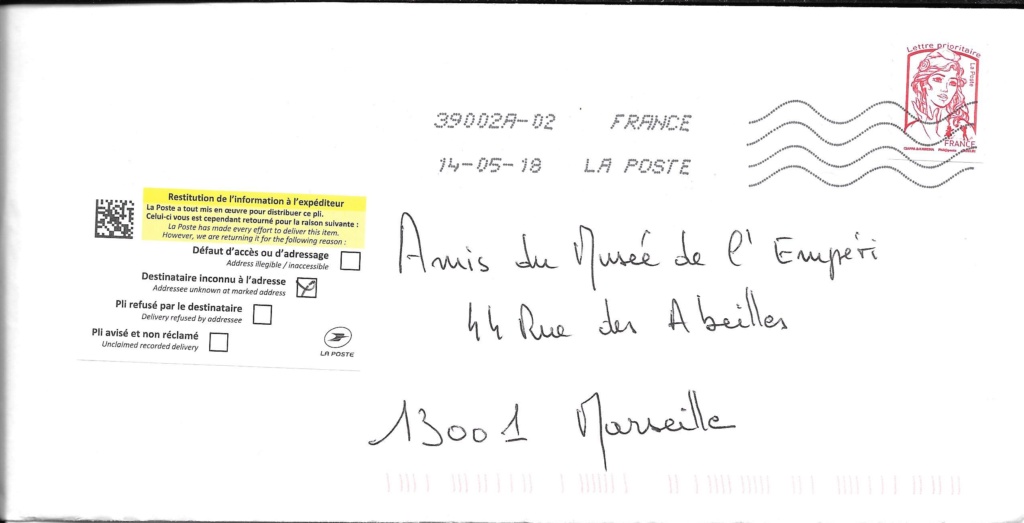 Lettre prioritaire
La Poste
FRANCE
39002A-02 FRANCE
14-05-18 LA POSTE
Restitution de l'information à l'expéditeur
La Poste a tout mis en œuvre pour distribuer ce pli.
Celui-ci vous est cependant retourné pour la raison suivante :
La Poste has made every effort to deliver this item.
However, we are returning it for the following reason :
Défaut d'accès ou d'adressage
Address illegible / inaccessible
Destinataire inconnu à l'adresse
Addressee unknown at marked address
Pli refusé par le destinataire
Delivery refused by addressee
Pli avisé et non réclamé
Unclaimed recorded delivery
LA POSTE
Amis du Musée de l'Empéri
44 Rue des Abeilles
13001 Marseille